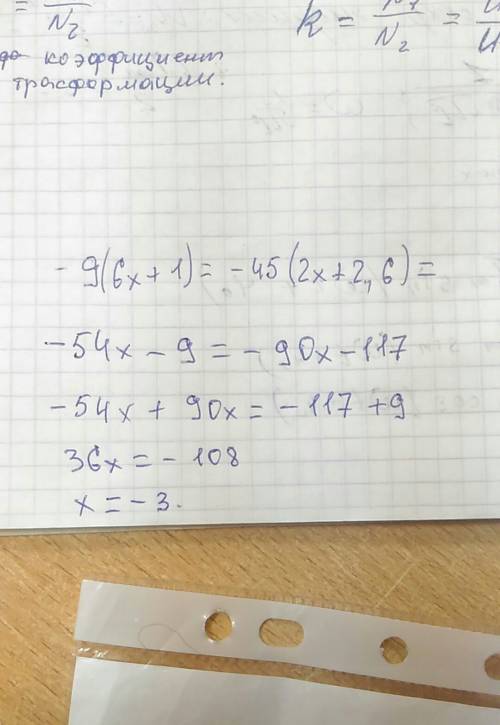 = N₂.
k = N₁/N₂ =
коэффициент
трасформации.
- 9(6x + 1) = - 45(2x + 2,6) =
- 54x - 9 = - 90x - 117
- 54x + 90x = - 117 + 9
36x = - 108
x = - 3.